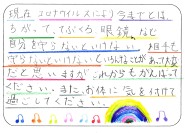 現在コロナウイルスにより今までとは、
ちがって、てぶくろ眼鏡など
自分を守らないといけない、相手を
守らないといけないといろんなことがあって大変
だと思いますがこれからもがんばって
ください。また、お体に気を付けて
過ごしてください。